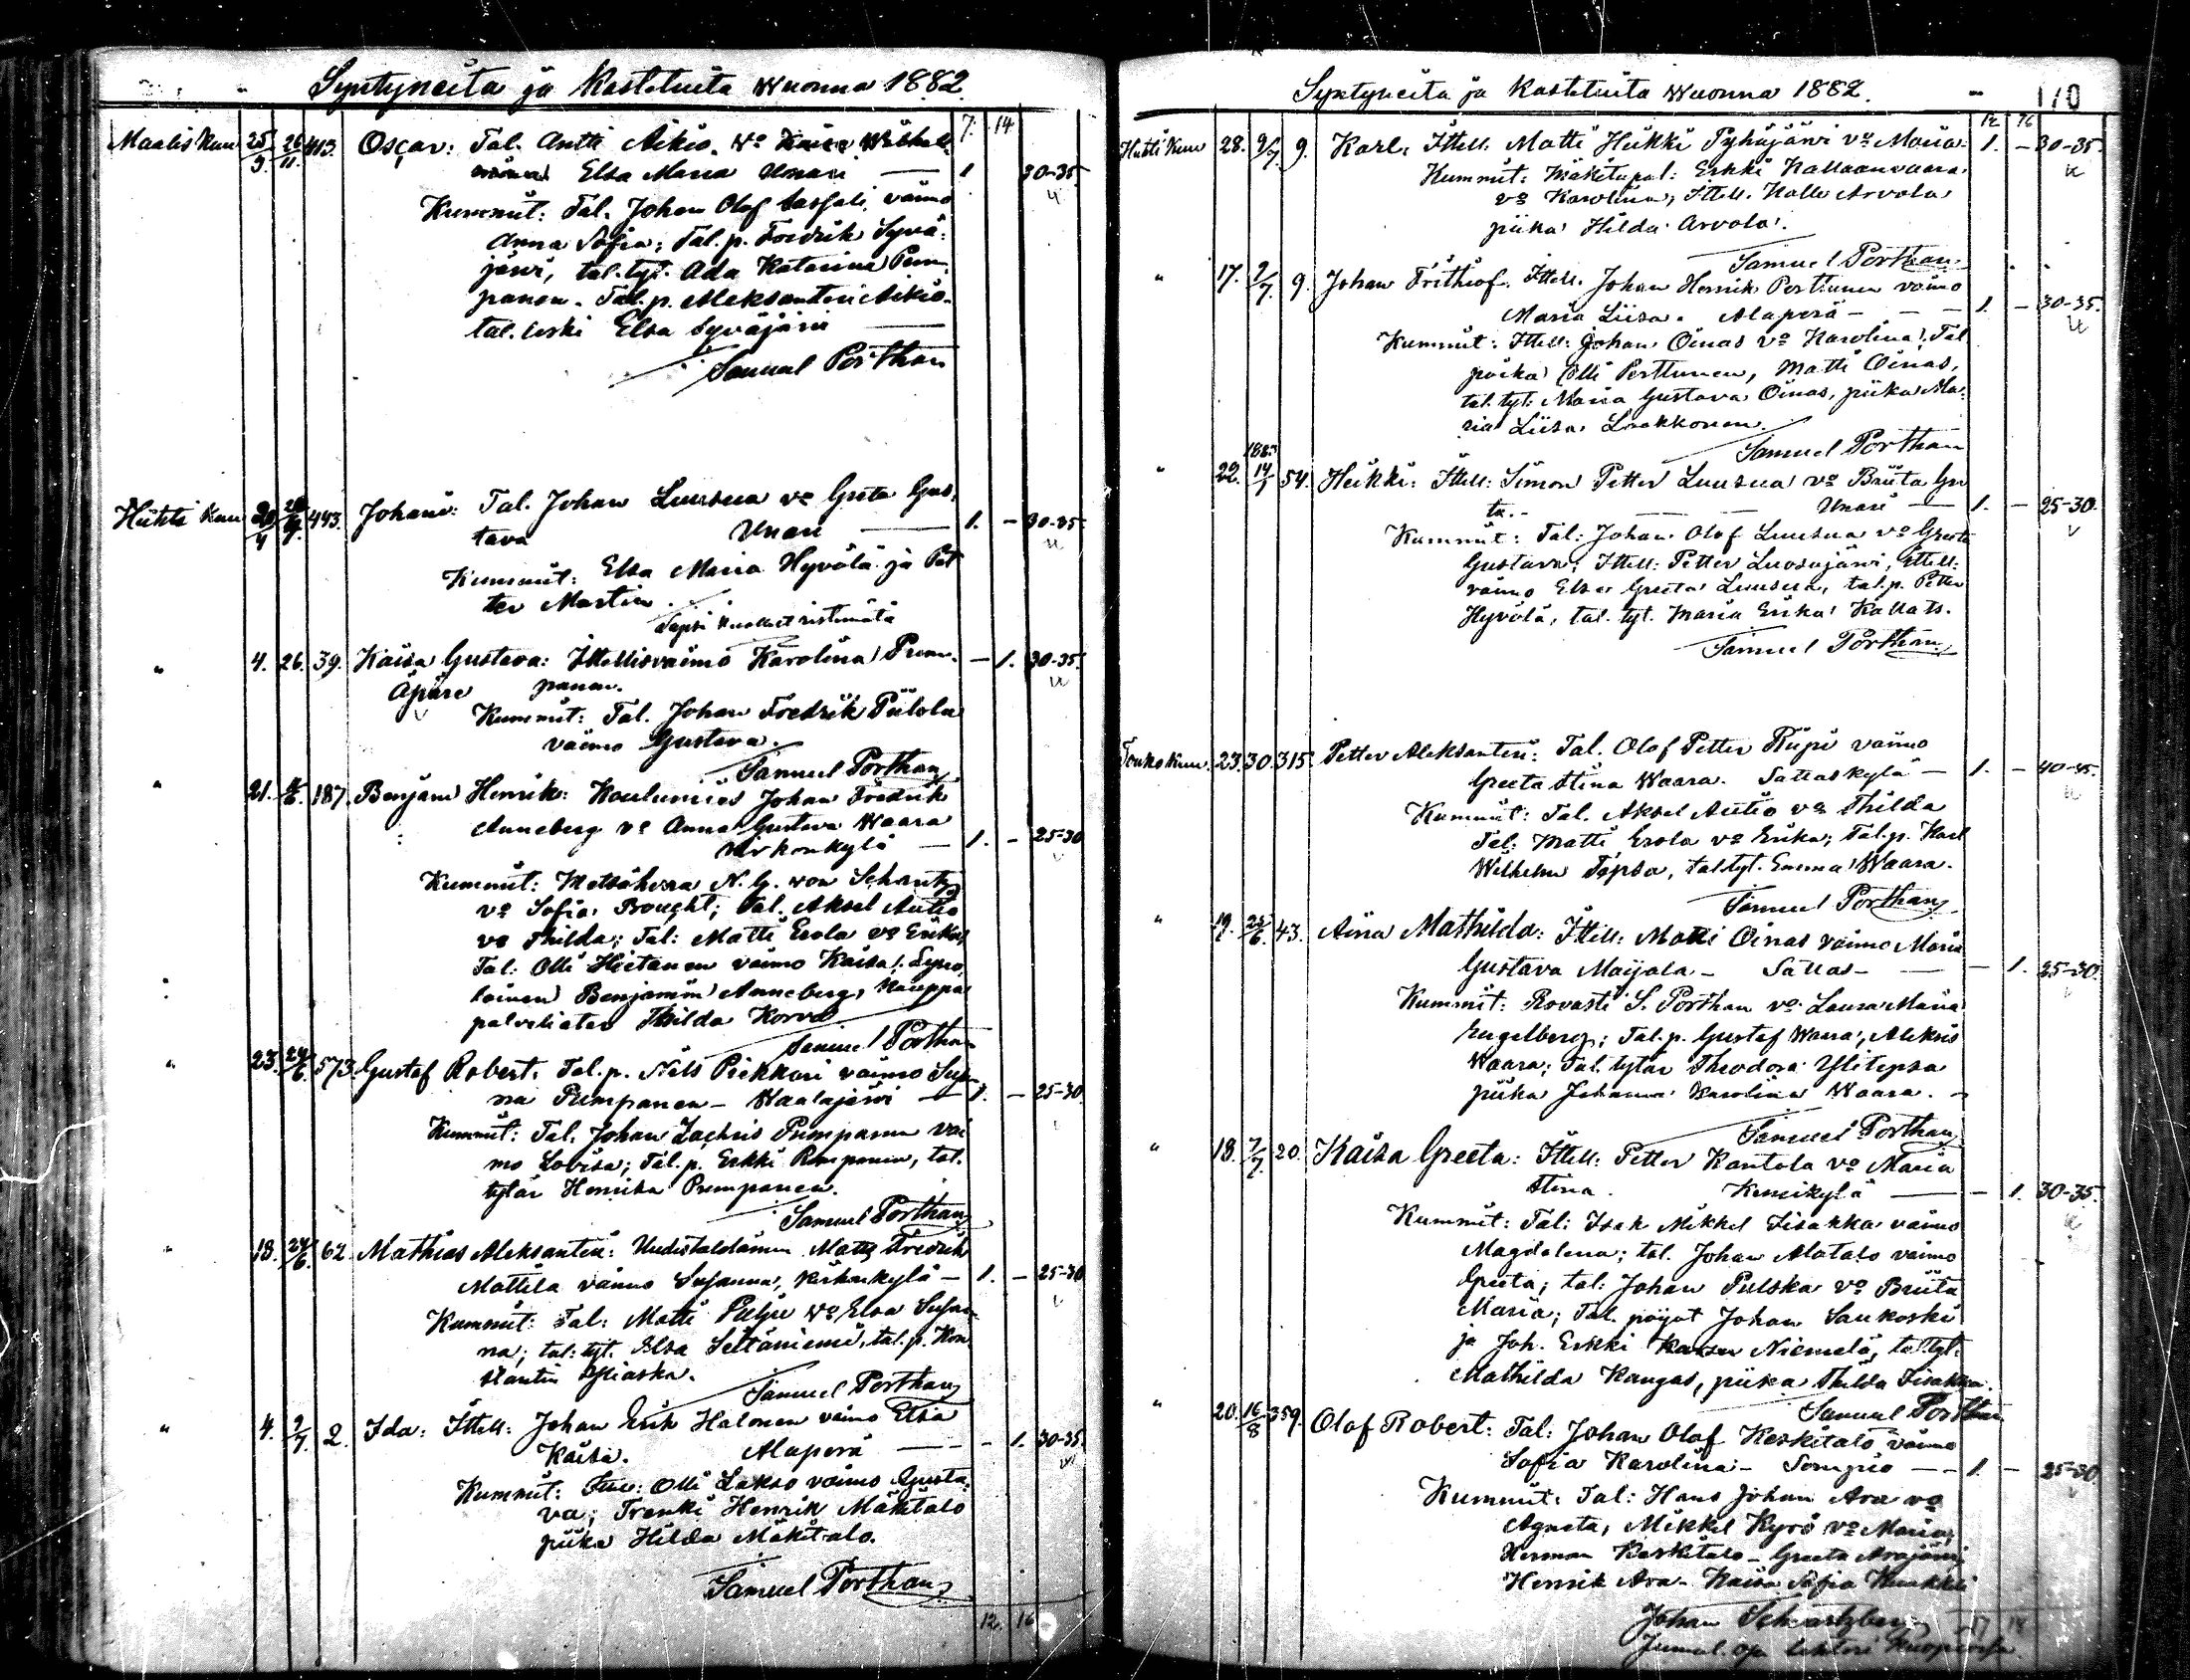 Syntyneitä ja Kastetuita Wuonna 1882.
7. 14
Maalis Kuu 25/3 26/11. 413. Oscar: Tal. Antti Aikio. Vo Kaisa
Elsa Maria Unari — 1 30-35.
Kummit: Tal. Johan Olof vaimo
Anna Sofia; Tal. p. Fredrik Syvä-
järvi, tal. tyt. Ada Katarina Pum-
panen. Tal. p. Aleksanteri Aikio.
tal. leski Elsa Syväjärvi —
Samuel Porthan
Huhti Kuu 443. Johani: Tal. Johan Luusua vo Greta Gus-
tava Unari — 1. - 30-35.
Kummit: Elsa Maria Hyvölä ja Pet
ter Martin.
Lapsi kuollut ristimätä
" 4. 26. 39. Kaisa Gustava: Ittellisvaimo Karolina Pum- - 1. 30-35.
Äpäre panen.
Kummit: Tal. Johan Fredrik Piilola
vaimo Gustava.
Samuel Porthan
" 21. 187. Benjam Henrik: Koulumies Johan Fredrik
Anneberg vo Anna Gustava Waara
Kirkonkylä — 1. - 25-30
Kummit: Metsäherra N. G. von Schantz
vo Sofia Bought; tal. Aksel Autio
vo Thilda; Tal: Matti Erola vo Erika;
Tal: Olli Hietanen vaimo Kaisa;
Benjamin Anneberg, Kauppa
palveliatar Thilda Korva
Samuel Porthan
" 23. 24/6. 573. Gustaf Robert. Tal. p. Nils Pickkari vaimo Susan-
na Pumpanen - Waalajärvi — 1. - 25-30
Kummit: Tal. Johan Zachris Pumpanen vai
mo Lovisa; Tal. p. Erkki Pumpanen, tal.
tytär Henrika Pumpanen.
Samuel Porthan
" 18. 24/6. 62. Mathias Aleksanteri: Uudistalolainen Matts Fredrik
Mattila vaimo Susanna, Kirkonkylä — 1. - 25-30
Kummit: Tal: Matti Pulju Vo Elsa Susan-
na; tal: tyt. Elsa Seitäniemi, tal. p. Kon-
stantin
Samuel Porthan
" 4. 9/7 2. Ida: Ittell: Johan Erik Halonen vaimo Elsa
Kaisa. Alaperä — - 1. 30-35.
Kummit: Olli Lakso vaimo Gusta-
va; Trenki Henrik Mäkitalo
piika Hilda Mäkitalo.
Samuel Porthan
12. 16
Syntyneitä ja Kastetuita Wuonna 1882. 110
12 16
Huhti Kuu 28. 9/7. 9. Karl. Ittell. Matti Heikki Pyhäjärvi vo Maria 1. - 30-35.
Kummit: Mäkitupal: Erkki Kallaanvaara
vo Karolina; Ittell. Kalle Arvola
piika Hilda Arvola.
Samuel Porthan
" 17. 9/7. 9. Johan Frithiof. Ittell. Johan Henrik Perttunen vaimo
Maria Liisa. Alaperä - 1. - 30-35.
Kummit: Ittell: Johan Oinas vo Karolina; Tal
poika Olli Perttunen, Matti Oinas,
tal. tyt. Maria Gustava Oinas, piika Ma-
ria Liisa Laakkonen.
Samuel Porthan
1883
" 22. 14/1 54. Heikki: Ittell: Simon Petter Luusua vo Briita Gre
ta. - Unari — 1. - 25-30.
Kummit: Tal: Johan Olof Luusua vo Greeta
Gustava; Ittell: Petter Luosujärvi, Ittell:
vaimo Elsa Greeta Luusua, tal. p. Petter
Hyvölä, tal. tyt. Maria Erika Kallats.
Samuel Porthan
Touko Kuu. 23. 30. 315. Petter Aleksanteri: Tal. Olof Petter Riipi vaimo
Greeta Stina Waara. Sattaskylä — 1. - 40-45.
Kummit: Tal. Aksel Autio vo Thilda
Tal: Matti Erola vo Erika; Tal. p. Karl
Wilhelm Tepsa, tal. tyt. Emma Waara.
Samuel Porthan
" 19. 25/6. 43. Aina Mathilda: Ittell: Matti Oinas vaimo Maria
Gustava Maijala - Sattas - - 1. 25-30.
Kummit: Rovasti S. Porthan vo Laura Maria
Engelberg; Tal. p. Gustaf Waara, Aleksis
Waara; Tal. tytär Theodora Ylitepsa
piika Johanna Karolina Waara. -
Samuel Porthan
" 18. 7/7. 20. Kaisa Greeta: Ittell: Petter Kantola vo Maria
Stina. Kemikylä — - 1. 30-35.
Kummit: Tal: Isak Mikkel Iisakka vaimo
Magdalena; tal. Johan Alatalo vaimo
Greeta; tal: Johan Pulska vo Briita
Maria; Tal. pojat Johan Saukoski
ja Joh. Erkki Niemelä, tal. tyt.
Mathilda Kangas, piika Thilda Iisakka.
Samuel Porthan
" 20. 16/8 359. Olof Robert: Tal: Johan Olof Keskitalo vaimo
Sofia Karolina - Sompio — 1. - 25-30
Kummit: Tal: Hans Johan Ara vo
Agneta, Mikkel Kyrö vo Maria,
Herman Keskitalo - Greeta Arajärvi,
Henrik Ara - Kaisa Sofia
Johan Schwartzberg
17 14
Jumal. op. lehtori Kuopiosta.